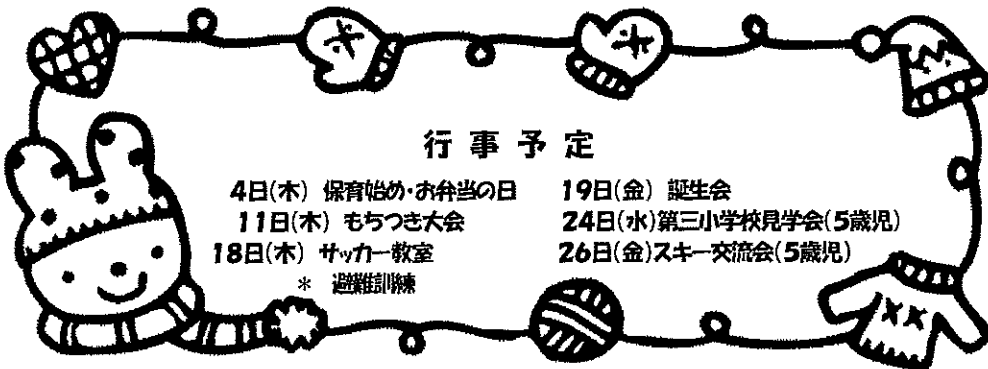 行事予定
4日(木) 保育始め・お弁当の日
11日(木) もちつき大会
18日(木) サッカー教室
* 避難訓練
19日(金) 誕生会
24日(水)第三小学校見学会(5歳児)
26日(金)スキー交流会(5歳児)